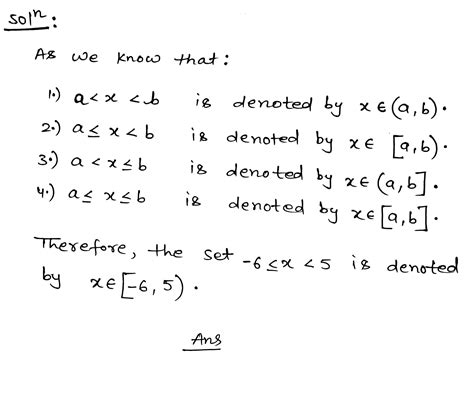 Solⁿ:
As we know that:
1.) a<x<b is denoted by x∈(a,b).
2.) a≤x<b is denoted by x∈ [a,b).
3.) a<x≤b is denoted by x∈(a,b].
4.) a≤x≤b is denoted by x∈[a,b].
Therefore, the set -6≤x<5 is denoted
by x∈[-6,5).
Ans